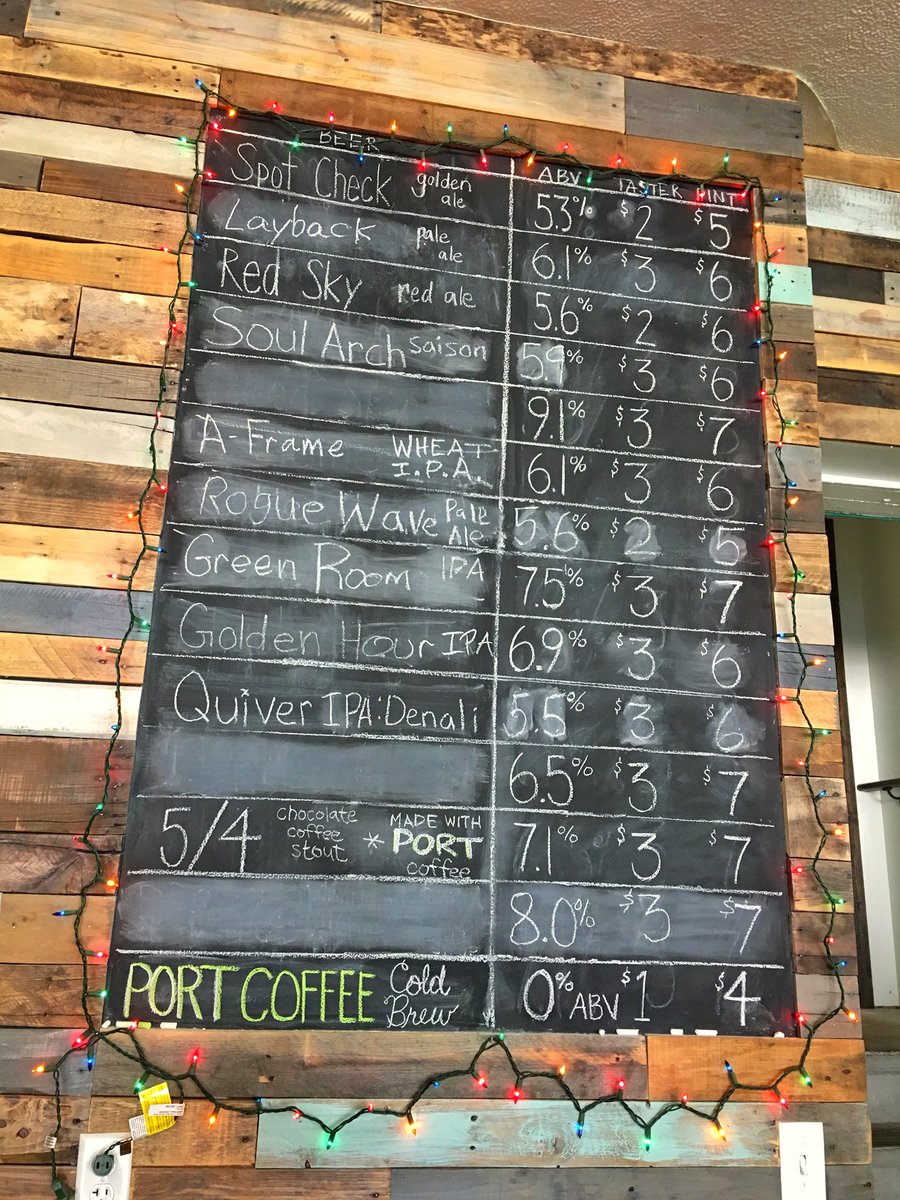 BEER ABV TASTER PINT
Spot Check golden ale 5.3% $2 $5
Layback pale ale 6.1% $3 $6
Red Sky red ale 5.6% $2 $6
Soul Arch Saison 5.9% $3 $6
9.1% $3 $7
A-Frame WHEAT I.P.A. 6.1% $3 $6
Rogue Wave Pale Ale 5.6% 2 5
Green Room IPA 7.5% $3 $7
Golden Hour IPA 6.9% $3 $6
Quiver IPA: Denali 5.5% $3 $6
6.5% $3 $7
5/4 chocolate coffee stout * MADE WITH PORT coffee 7.1% $3 $7
8.0% $3 $7
PORT COFFEE Cold Brew 0% ABV $1 $4